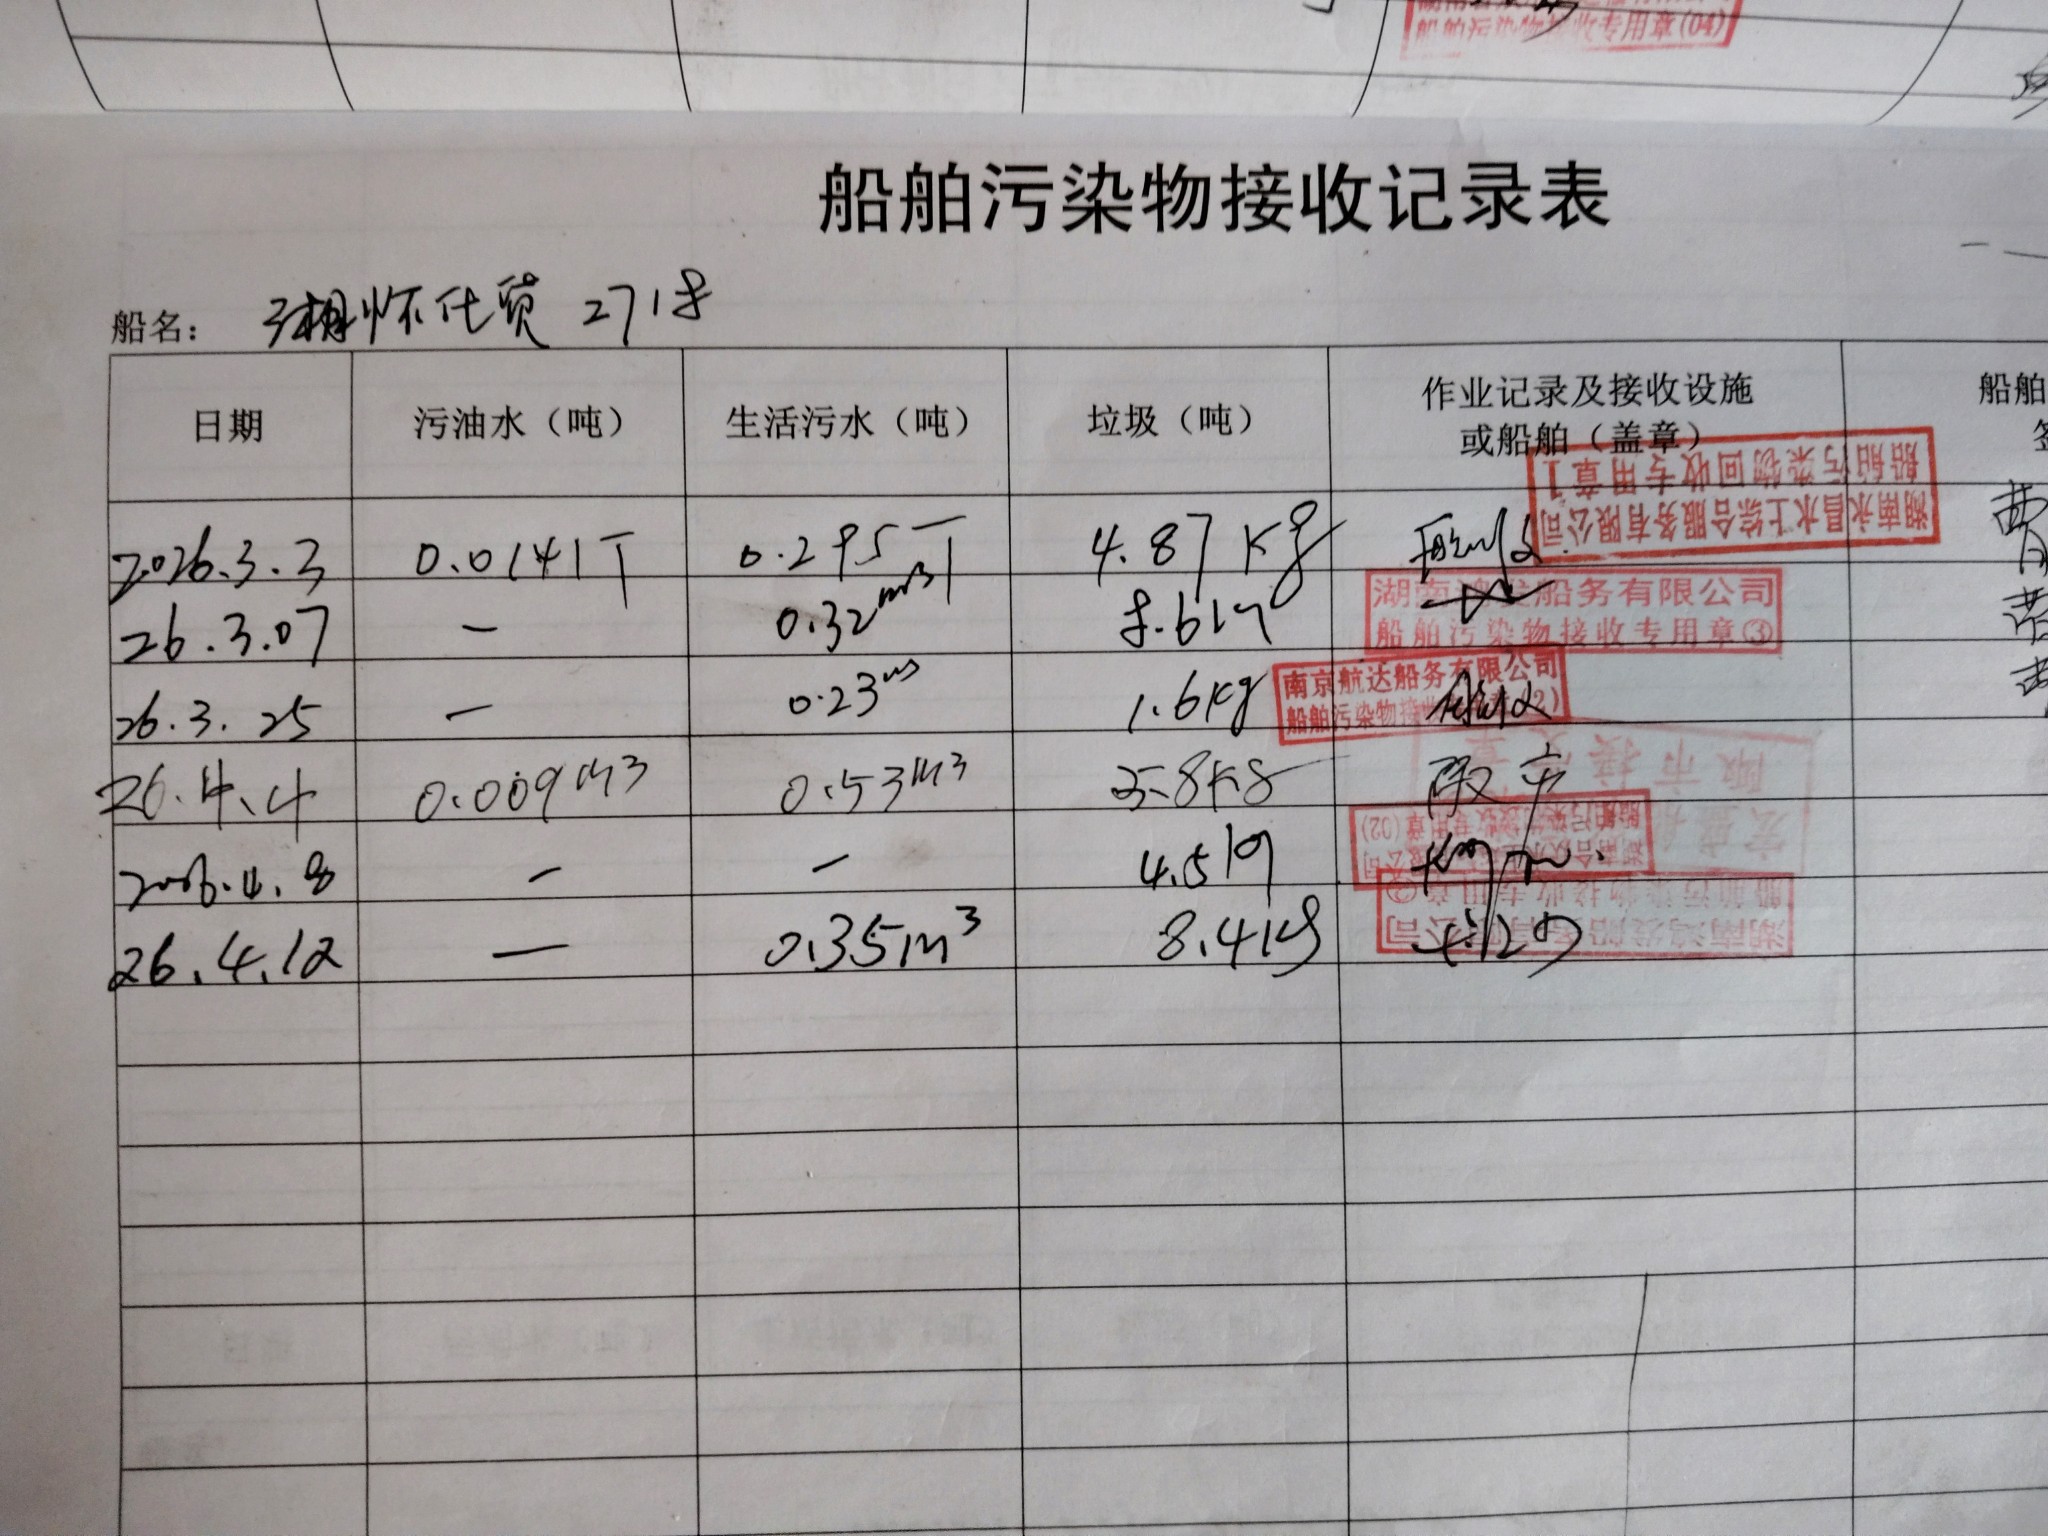 船舶污染物接收专用章(04)
船舶污染物接收记录表
船名: 湘怀化货 271号
日期 污油水（吨） 生活污水（吨） 垃圾（吨） 作业记录及接收设施或船舶（盖章） 船舶
湖南永昌水上综合服务有限公司
船舶污染物回收专用章1
2026.3.3 0.0141T 0.295T 4.87Kg
湖南鸿发船务有限公司
船舶污染物接收专用章③
26.3.07 — 0.32m3 8.6kg
南京航达船务有限公司
船舶污染物接收专用章(2)
26.3.25 — 0.23m3 1.6kg
26.4.4 0.009m3 0.53m3 5.8Kg
2026.4.8 — — 4.5kg
26.4.12 — 0.35m3 8.4kg
湖南鸿发船务有限公司
船舶污染物接收专用章